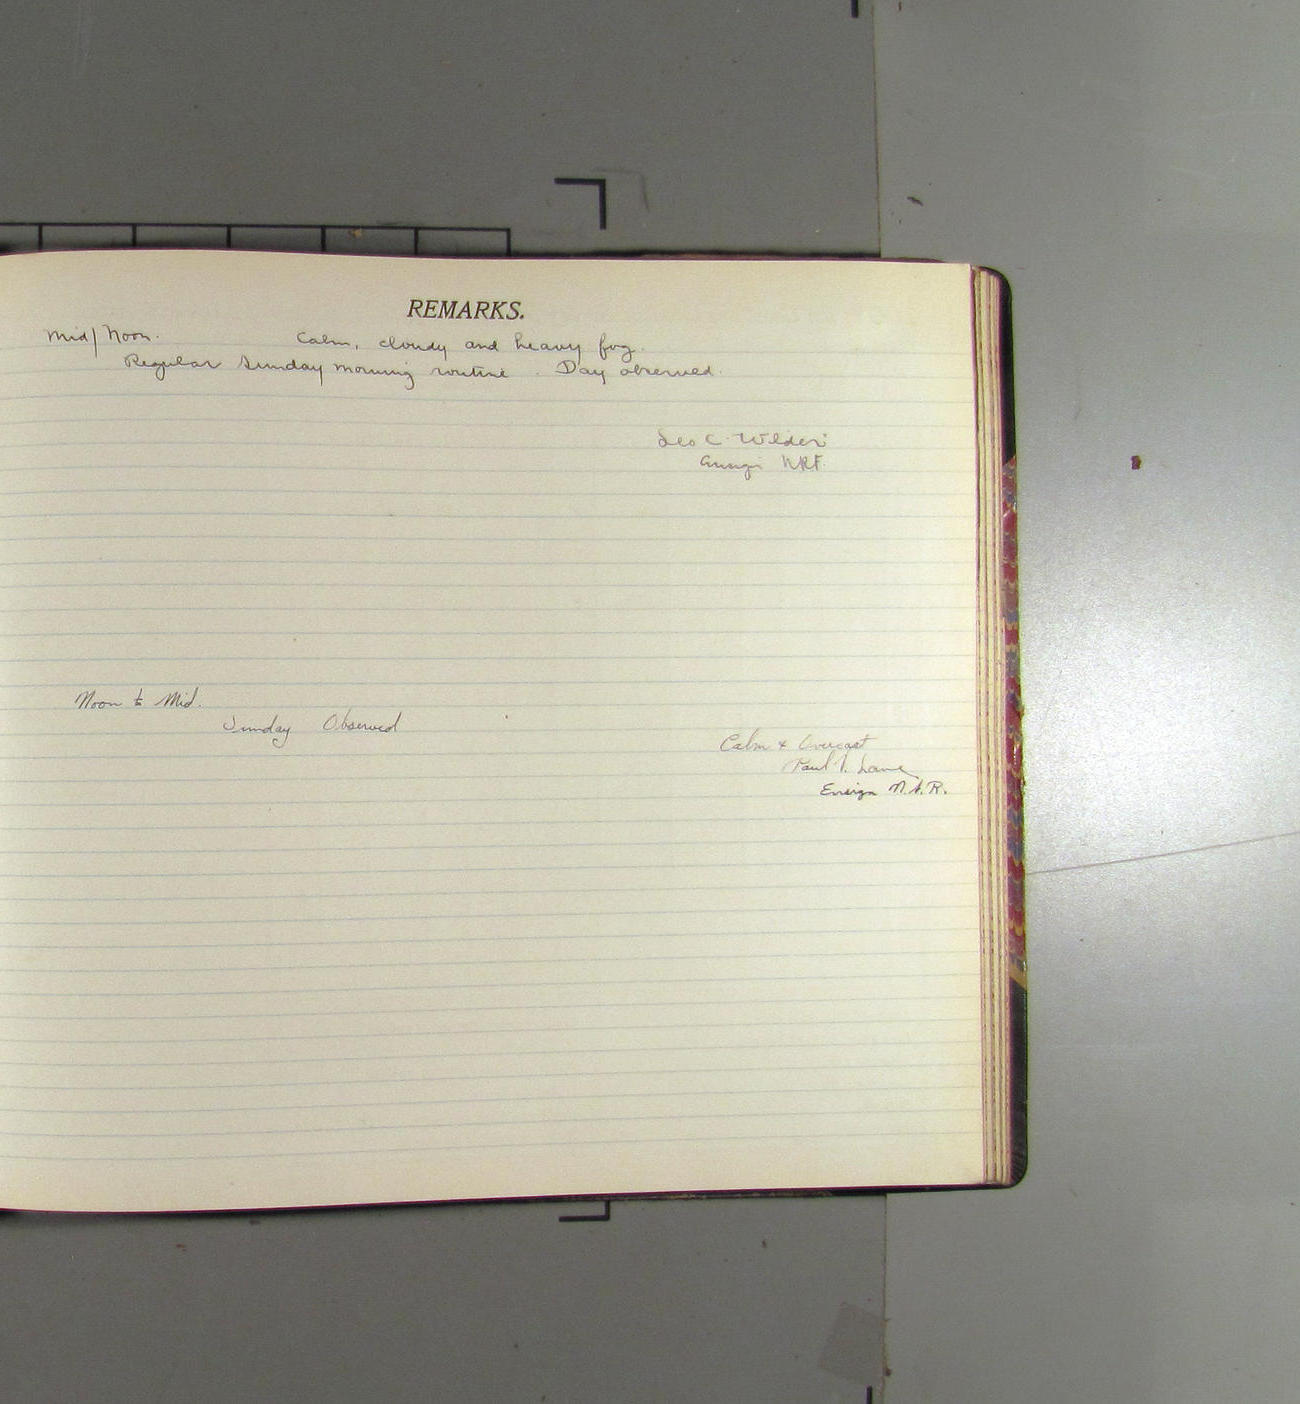 REMARKS.
Mid/Noon. Calm, cloudy and heavy fog.
Regular Sunday morning routine. Day observed.
Geo C. Wilder
Ensign NRF.
Noon to Mid.
Sunday Observed
Calm & Overcast
Paul Lane
Ensign N.R.